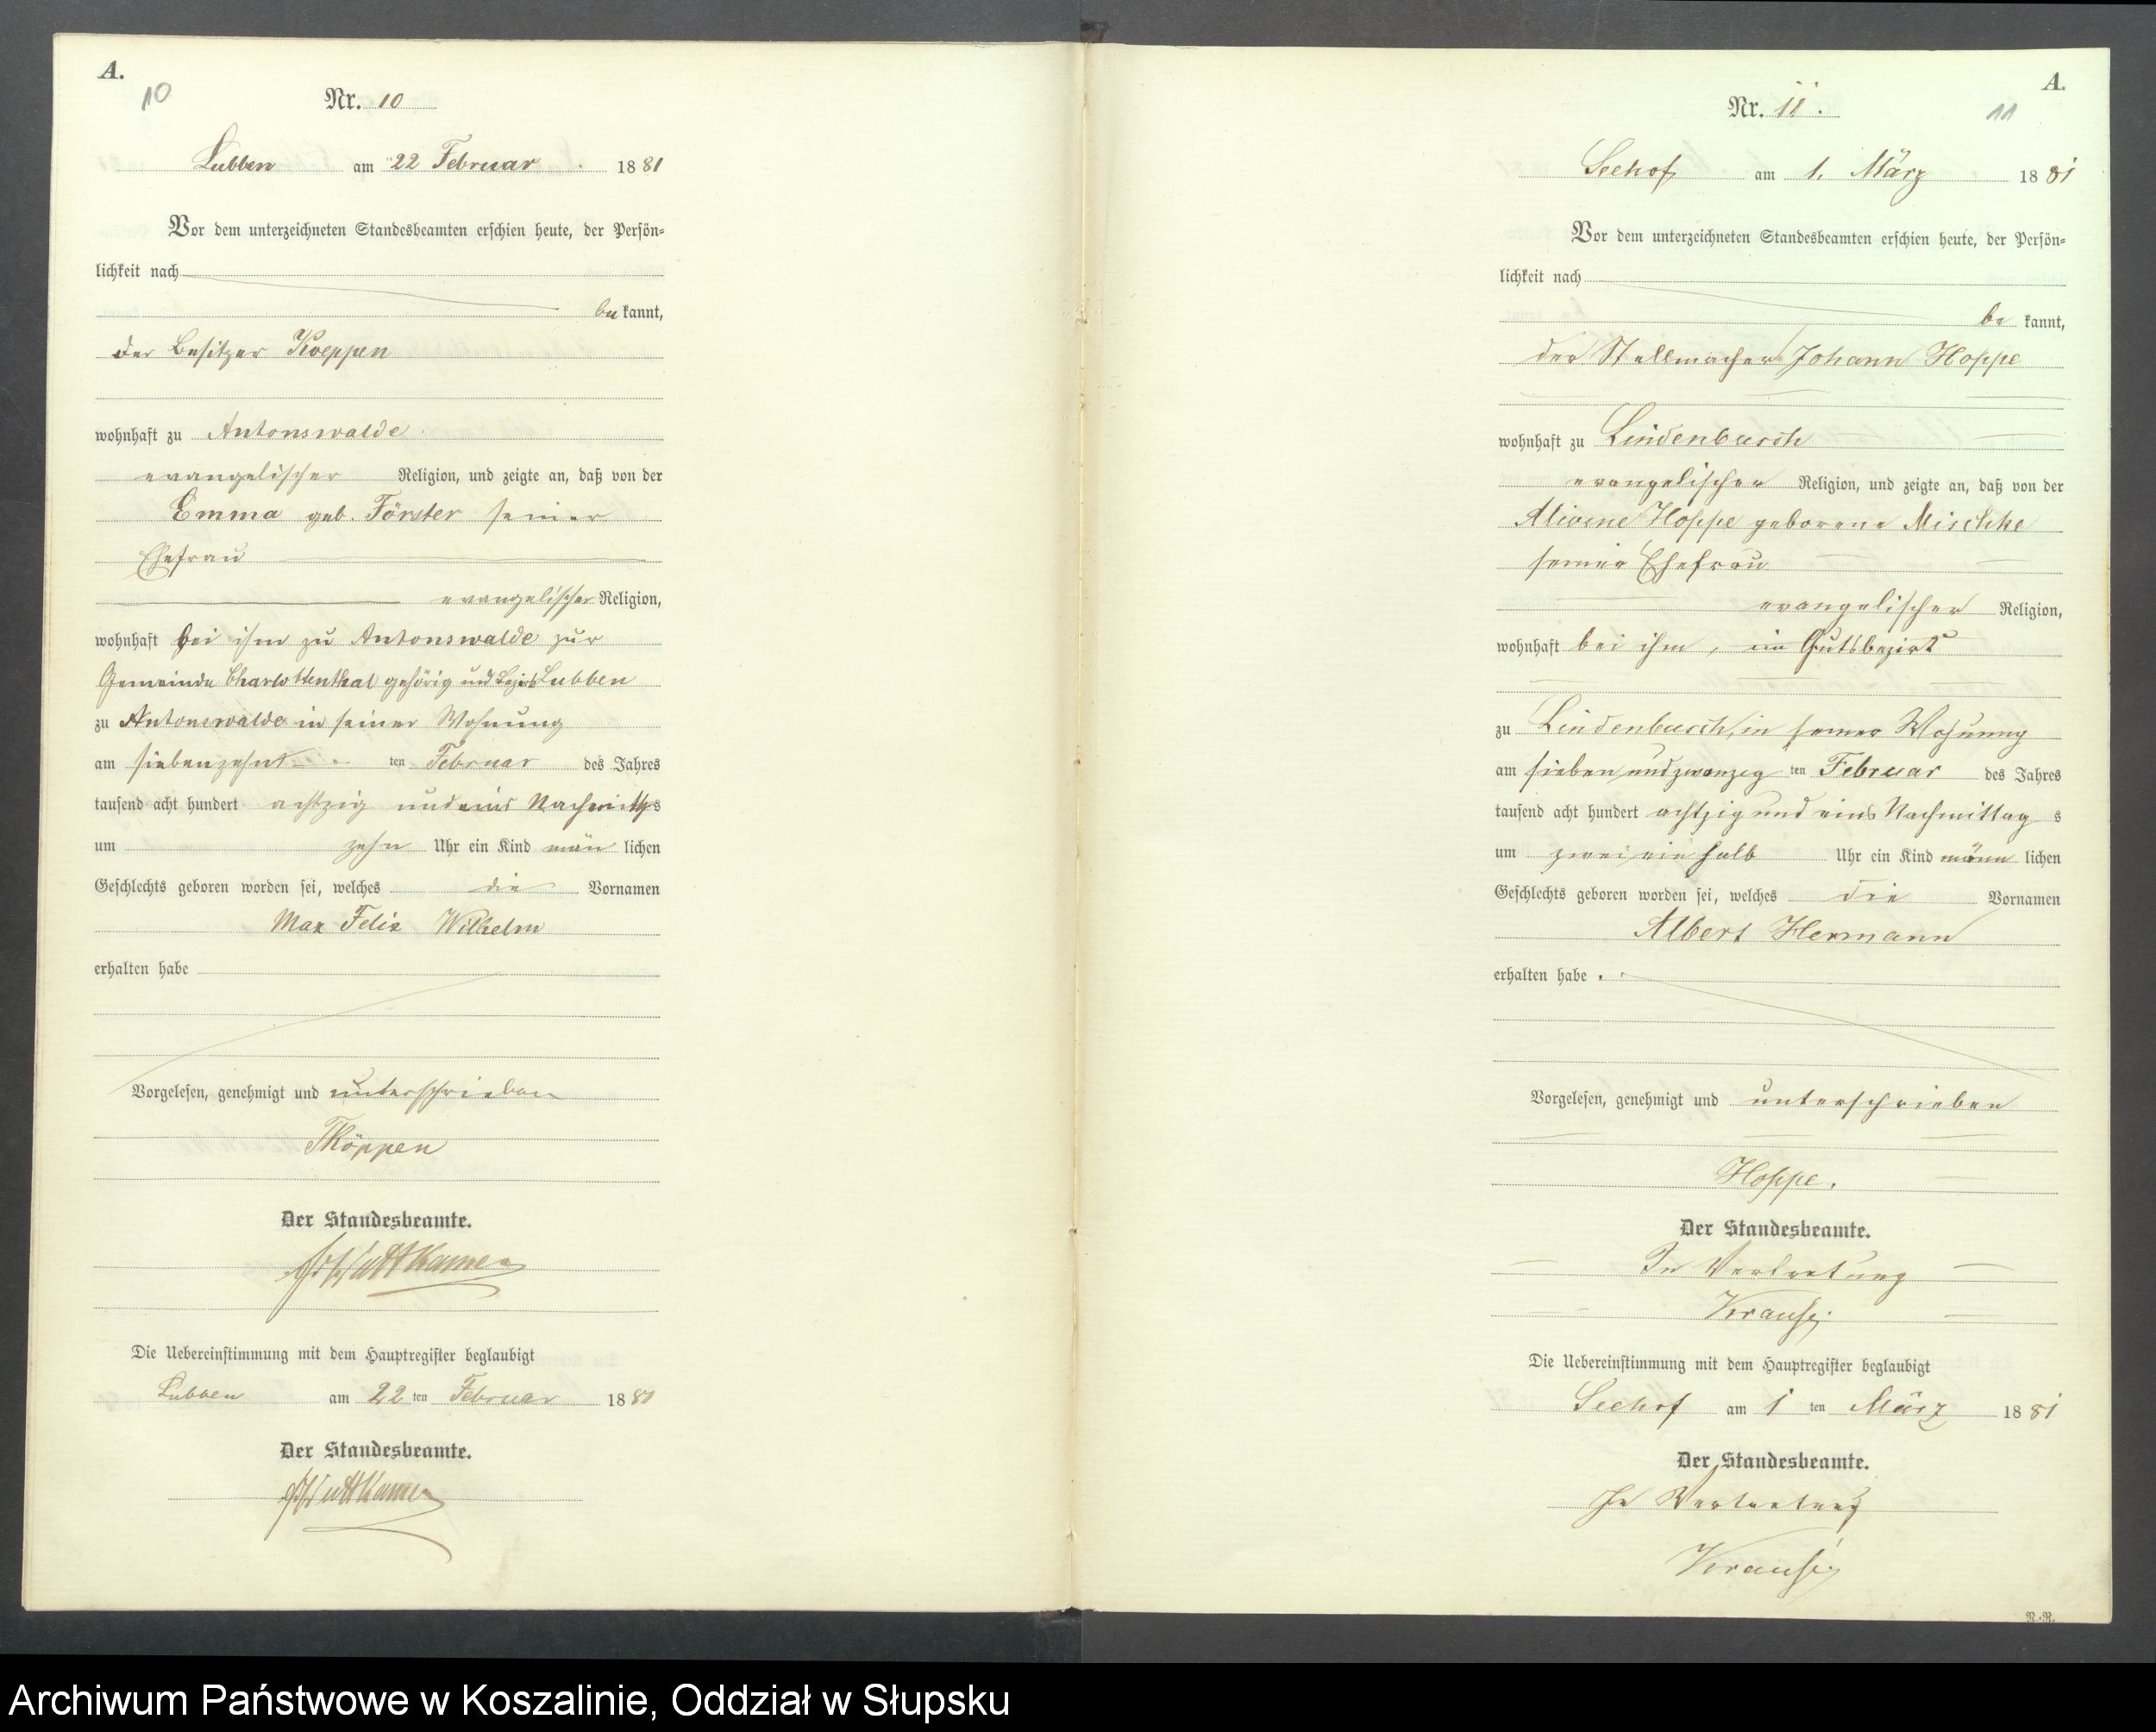 A.
10
Nr. 10
Lubben am 22 Februar 1881
Vor dem unterzeichneten Standesbeamten erschien heute, der Persön=
lichkeit nach
be kannt,
der Besitzer Koeppen
wohnhaft zu Antonswalde
evangelischer Religion, und zeigte an, daß von der
Emma geb. Förster seiner
Ehefrau
evangelischer Religion,
wohnhaft bei ihm zu Antonswalde zur
Gemeinde Charlottenthal gehörig und Bezirk Lubben
zu Antonswalde in seiner Wohnung
am siebenzehnt ten Februar des Jahres
tausend acht hundert achtzig und eins Nachmittgs
um zehn Uhr ein Kind män lichen
Geschlechts geboren worden sei, welches die Vornamen
Max Felix Wilhelm
erhalten habe
Vorgelesen, genehmigt und unterschrieben
Köppen
Der Standesbeamte.
Puttkamer
Die Uebereinstimmung mit dem Hauptregister beglaubigt
Lubben am 22 ten Februar 1881
Der Standesbeamte.
Puttkamer
A.
11
Nr. 11.
Seehof am 1. März 1881
Vor dem unterzeichneten Standesbeamten erschien heute, der Persön=
lichkeit nach
be kannt,
der Stellmacher Johann Hoppe
wohnhaft zu Lindenbusch
evangelischer Religion, und zeigte an, daß von der
Alwine Hoppe geborene Mischke
seiner Ehefrau
evangelischer Religion,
wohnhaft bei ihm, im Gutsbezirk
zu Lindenbusch, in seiner Wohnung
am sieben und zwanzig ten Februar des Jahres
tausend acht hundert achtzig und eins Nachmittag s
um zwei ein halb Uhr ein Kind männ lichen
Geschlechts geboren worden sei, welches die Vornamen
Albert Hermann
erhalten habe .
Vorgelesen, genehmigt und unterschrieben
Hoppe.
Der Standesbeamte.
In Vertretung
Krause.
Die Uebereinstimmung mit dem Hauptregister beglaubigt
Seehof am 1 ten März 1881
Der Standesbeamte.
In Vertretung
Krause.
N.-R.
Archiwum Państwowe w Koszalinie, Oddział w Słupsku